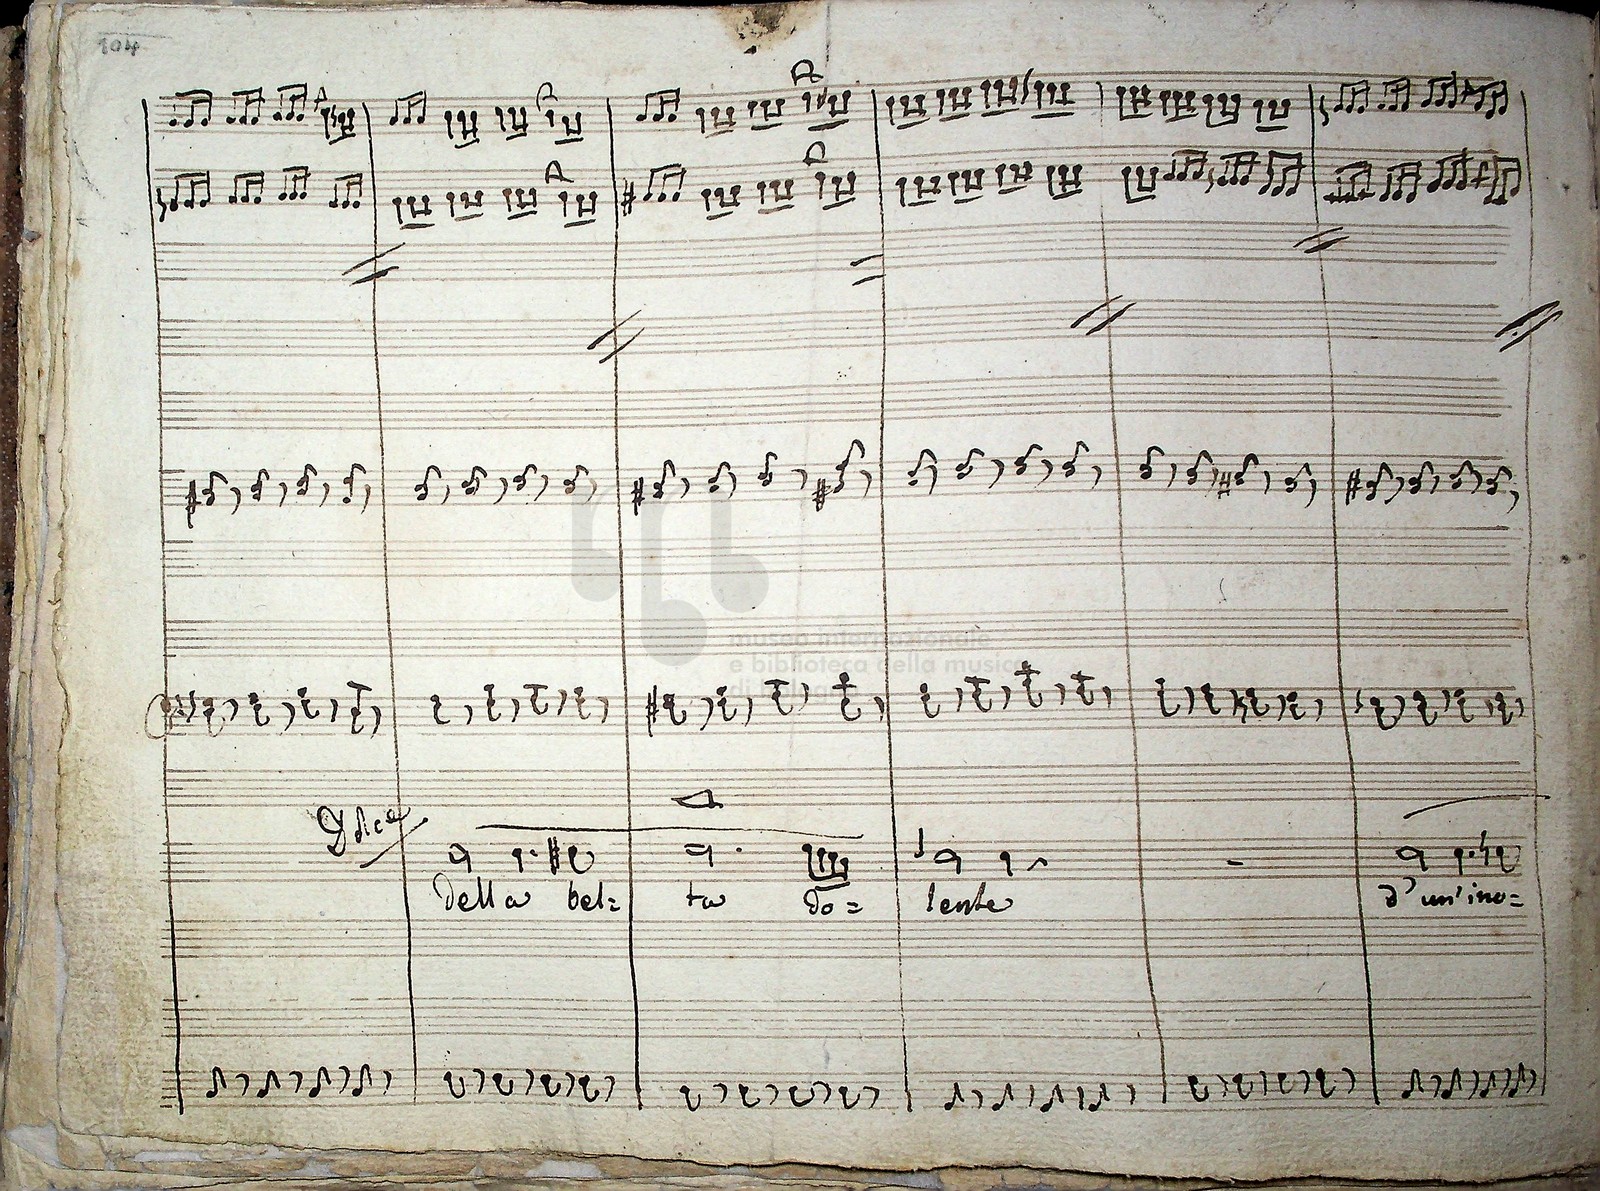 104
museo internazionale
e biblioteca della musica
di bologna
Della bel= ta do= lente d'un'ino=